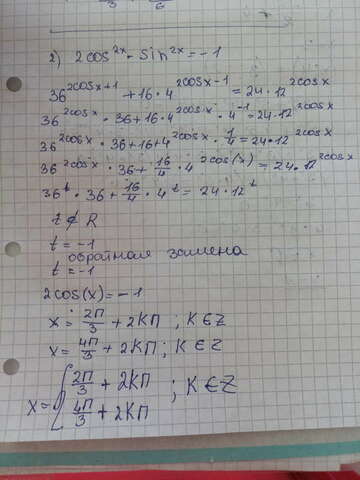 2) 2cos^{2x} - sin^{2x} = -1
36^{2cosx+1} + 16·4^{2cosx-1} = 24·12^{2cosx}
36^{2cosx} · 36+16·4^{2cosx} · 4^{-1} = 24·12^{2cosx}
36^{2cosx} · 36+16+4^{2cosx} · \frac{1}{4} = 24·12^{2cosx}
36^{2cosx} · 36 + \frac{16}{4} · 4^{2cos(x)} = 24·12^{2cosx}
36^t · 36 + \frac{16}{4} · 4^t = 24·12^t
t ∉ R
t = -1
обратная замена
t = -1
2cos(x) = -1
x = \frac{2П}{3} + 2КП ; К ∈ Z
x = \frac{4П}{3} + 2КП ; К ∈ Z
x = { \frac{2П}{3} + 2КП ; К ∈ Z
\frac{4П}{3} + 2КП